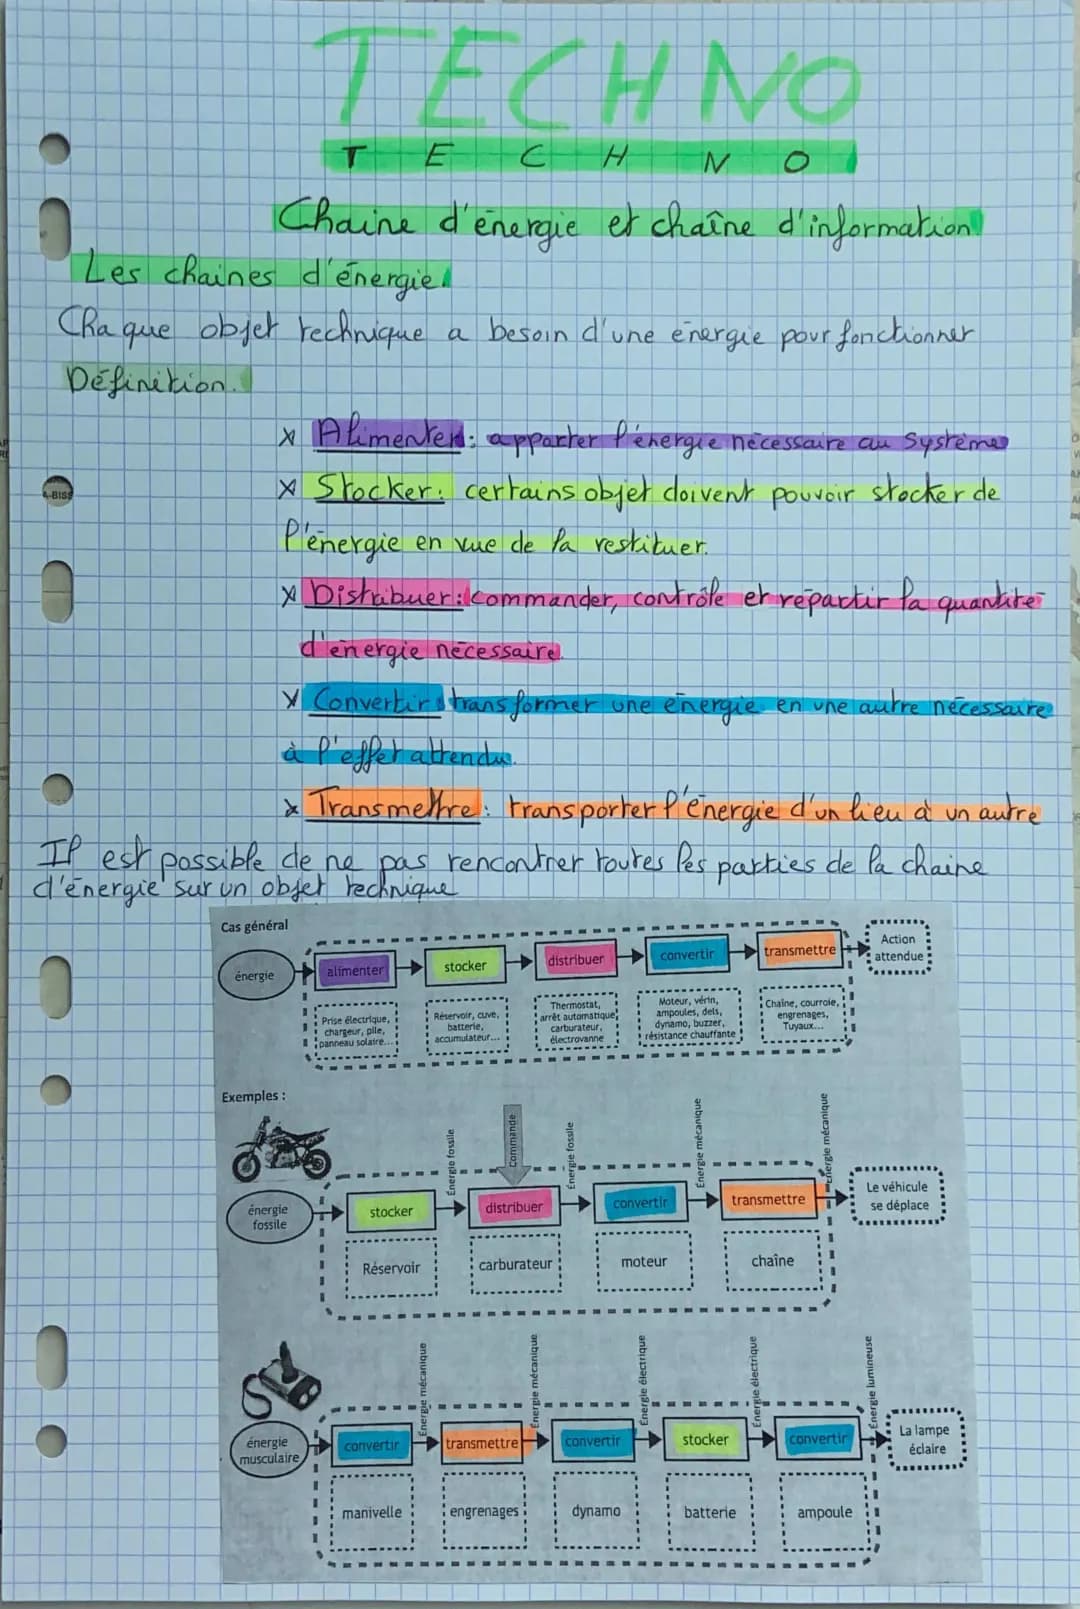 TECHNO
T E C H N O
Chaine d'énergie et chaîne d'information.
Les chaines d'énergie.
Chaque objet technique a besoin d'une énergie pour fonctionner
Définition.
x Alimenter: apporter l'énergie nécessaire au Système
x Stocker: certains objet doivent pouvoir stocker de
l'énergie en vue de la restituer.
x Distribuer: commander, contrôle et répartir la quantité
d'énergie nécessaire.
x Convertir: transformer une énergie en une autre nécessaire
à l'effet attendu.
x Transmettre: transporter l'énergie d'un lieu à un autre
Il est possible de ne pas rencontrer toutes les parties de la chaine
d'énergie sur un objet technique
Cas général
énergie alimenter stocker distribuer convertir transmettre Action
attendue
Prise électrique,
chargeur, pile,
panneau solaire...
Réservoir, cuve,
batterie,
accumulateur...
Thermostat,
arrêt automatique
carburateur,
électrovanne
Moteur, vérin,
ampoules, dels,
dynamo, buzzer,
résistance chauffante
Chaîne, courroie,
engrenages,
Tuyaux...
Exemples :
Énergie fossile
Commande
Énergie fossile
Énergie mécanique
Énergie mécanique
énergie
fossile
stocker distribuer convertir transmettre
Le véhicule
se déplace
Réservoir carburateur moteur chaîne
Énergie mécanique
Énergie mécanique
Énergie électrique
Énergie électrique
Énergie lumineuse
énergie
musculaire
convertir transmettre convertir stocker convertir
La lampe
éclaire
manivelle engrenages dynamo batterie ampoule